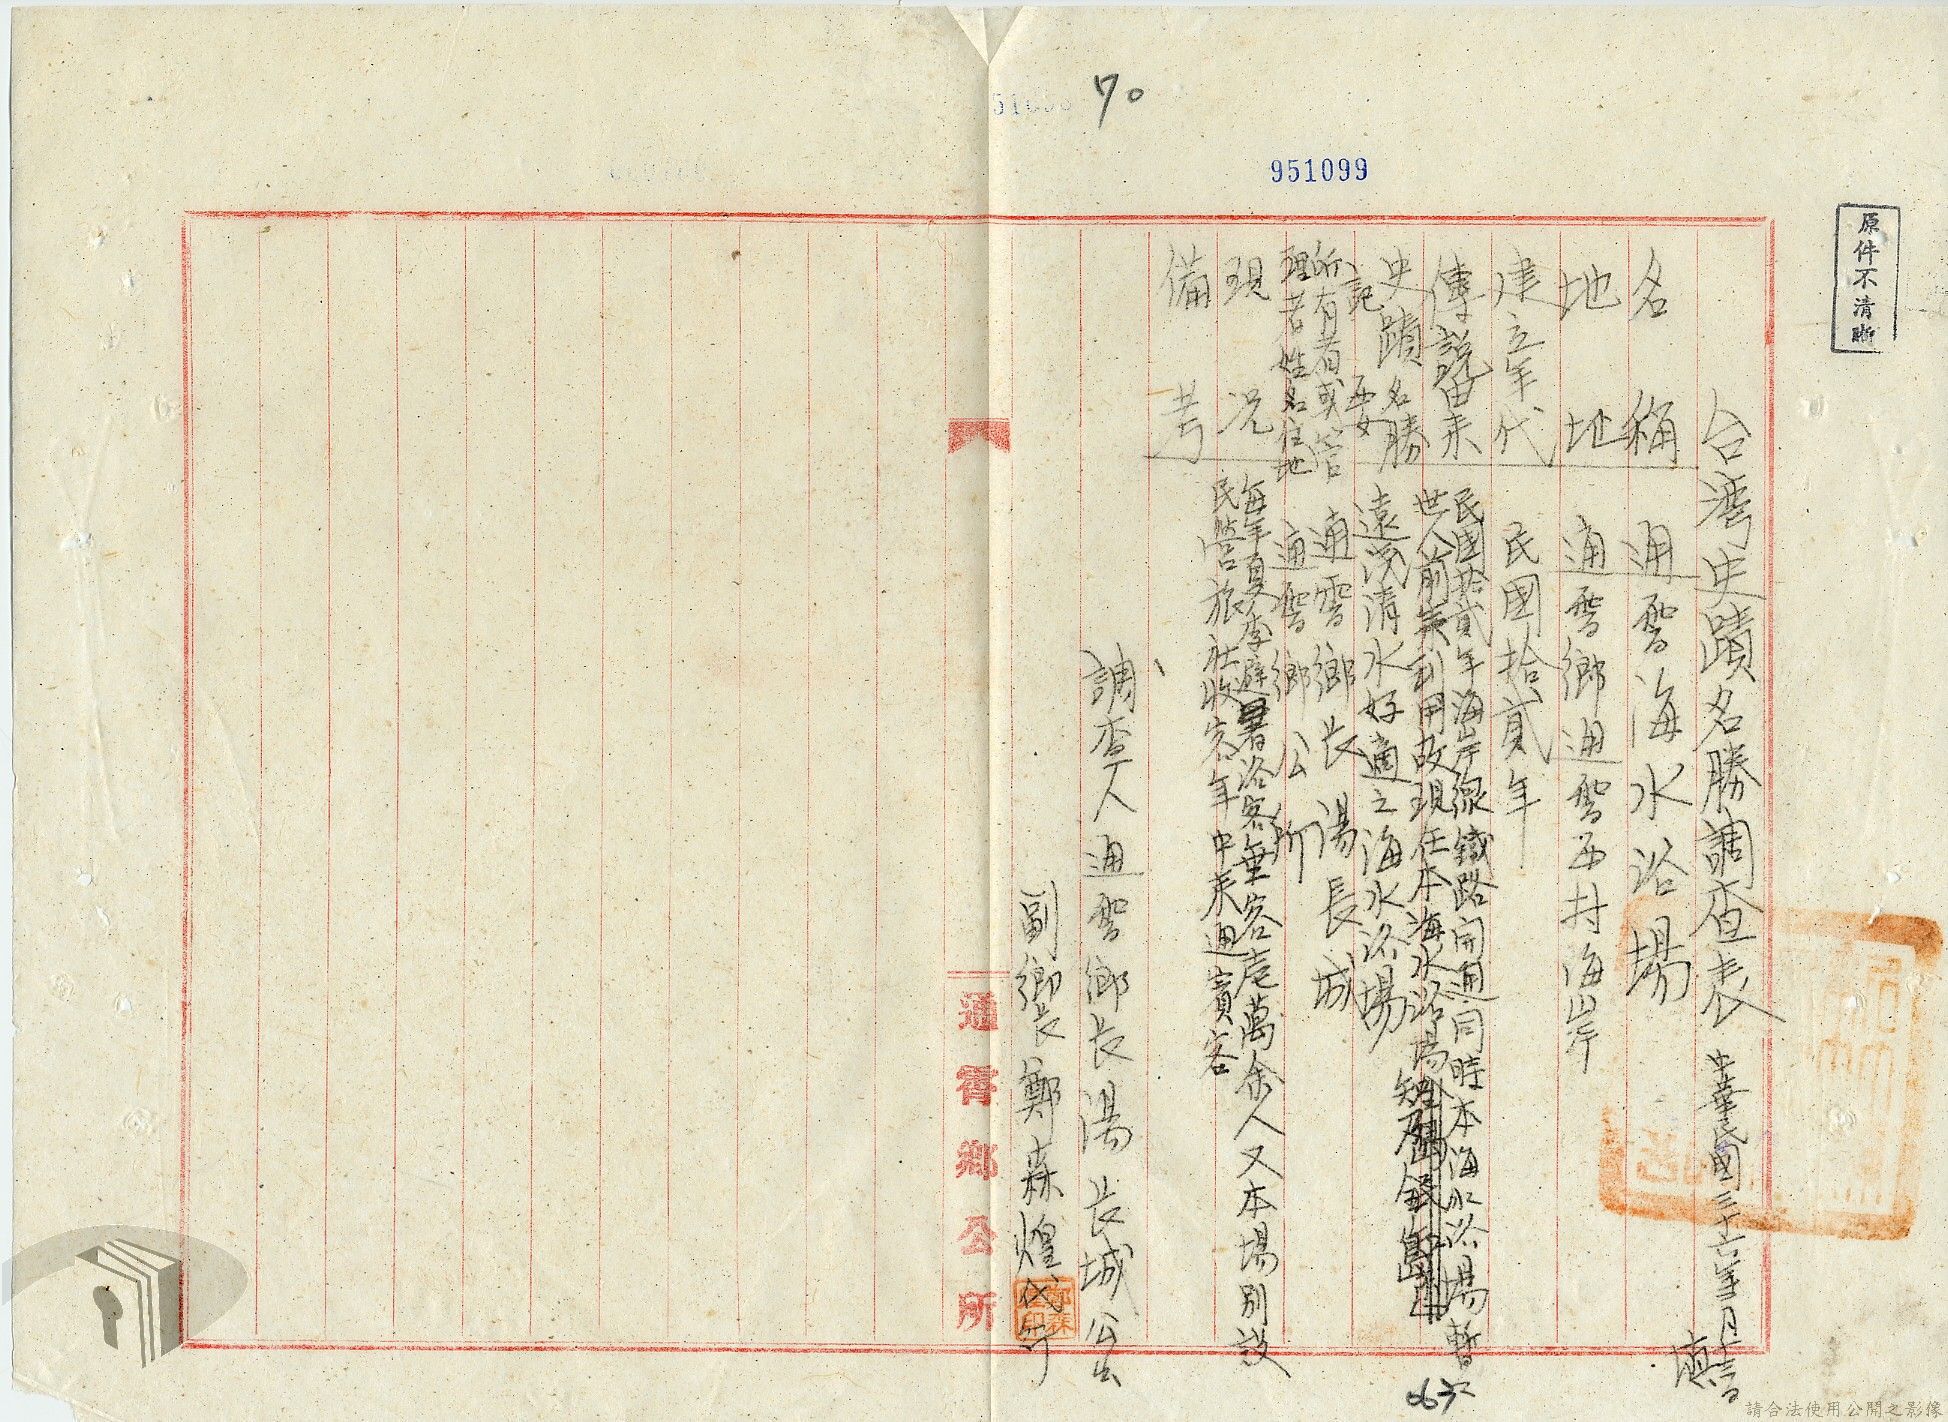 70
951099
原件不清晰
台灣史蹟名勝調查表 中華民國三十六年 月 日
名稱 通霄海水浴場
地址 通霄鄉通霄西村海岸
建立年代 民國拾貳年
傳說由來 民國拾貳年海岸線鐵路開通同時本海水浴場暫
世人前來利用故現在本海水浴場
史蹟名勝記要 遠浅清水好適之海水浴場
所有者或管 通霄鄉長湯長城
理者姓名住地 通霄鄉公所
現況 每年夏季避暑浴客無客壱萬余人又本場別設
民營旅社收容年中来通賓客
備考
調查人 通霄鄉長湯長城公出
副鄉長鄭森煌代行
通霄鄉公所
063
請合法使用公開之影像